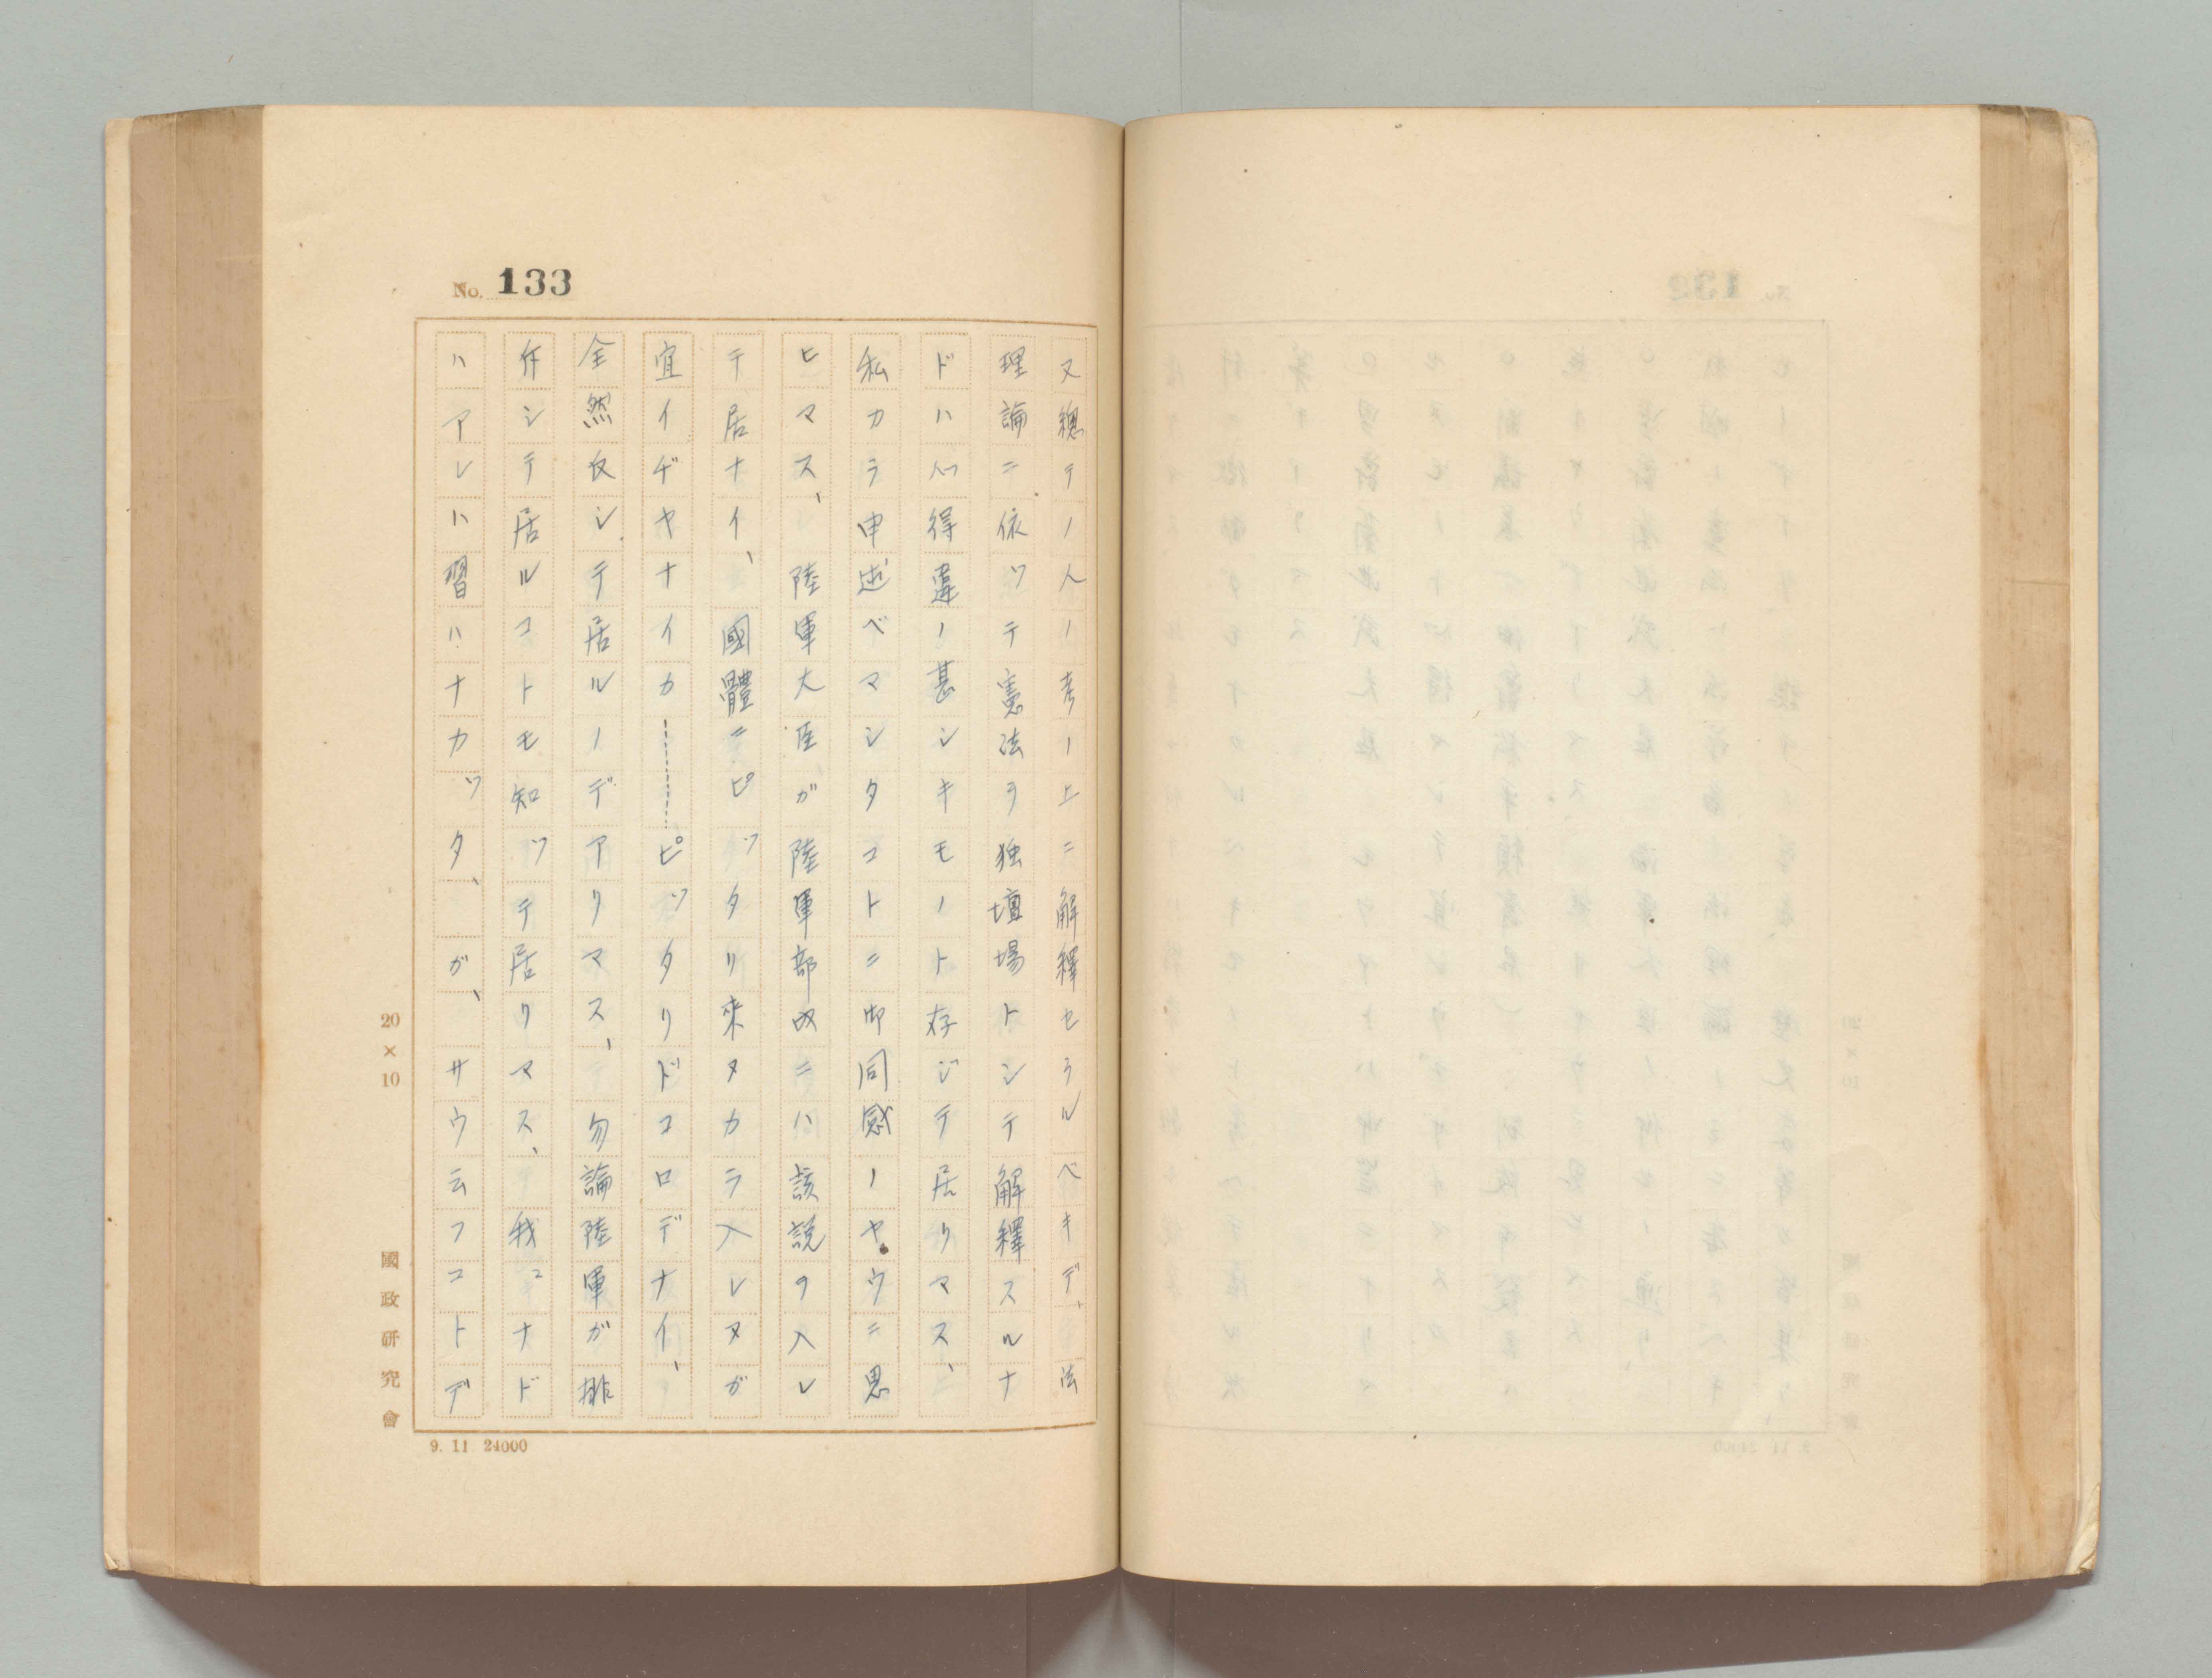 No. 133
又總テノ人ノ考ノ上ニ解釋セラルベキデ、法
理論ニ依ツテ憲法ヲ独壇場トシテ解釋スルナ
ドハ心得違ノ甚シキモノト存ジテ居リマス、
私カラ申述ベマシタコトニ御同感ノヤウニ思
ヒマス、陸軍大臣ガ陸軍部内ニハ該説ヲ入レ
テ居ナイ、國體ニピッタリ來ヌカラ入レヌガ
宜イヂヤナイカ――ピッタリドコロデナイ、
全然反シテ居ルノデアリマス、勿論陸軍ガ排
斥シテ居ルコトモ知ッテ居リマス、我々ナド
ハアレハ習ハナカッタ、ガ、サウ云フコトデ
20×10
國政研究會
9. 11 24000